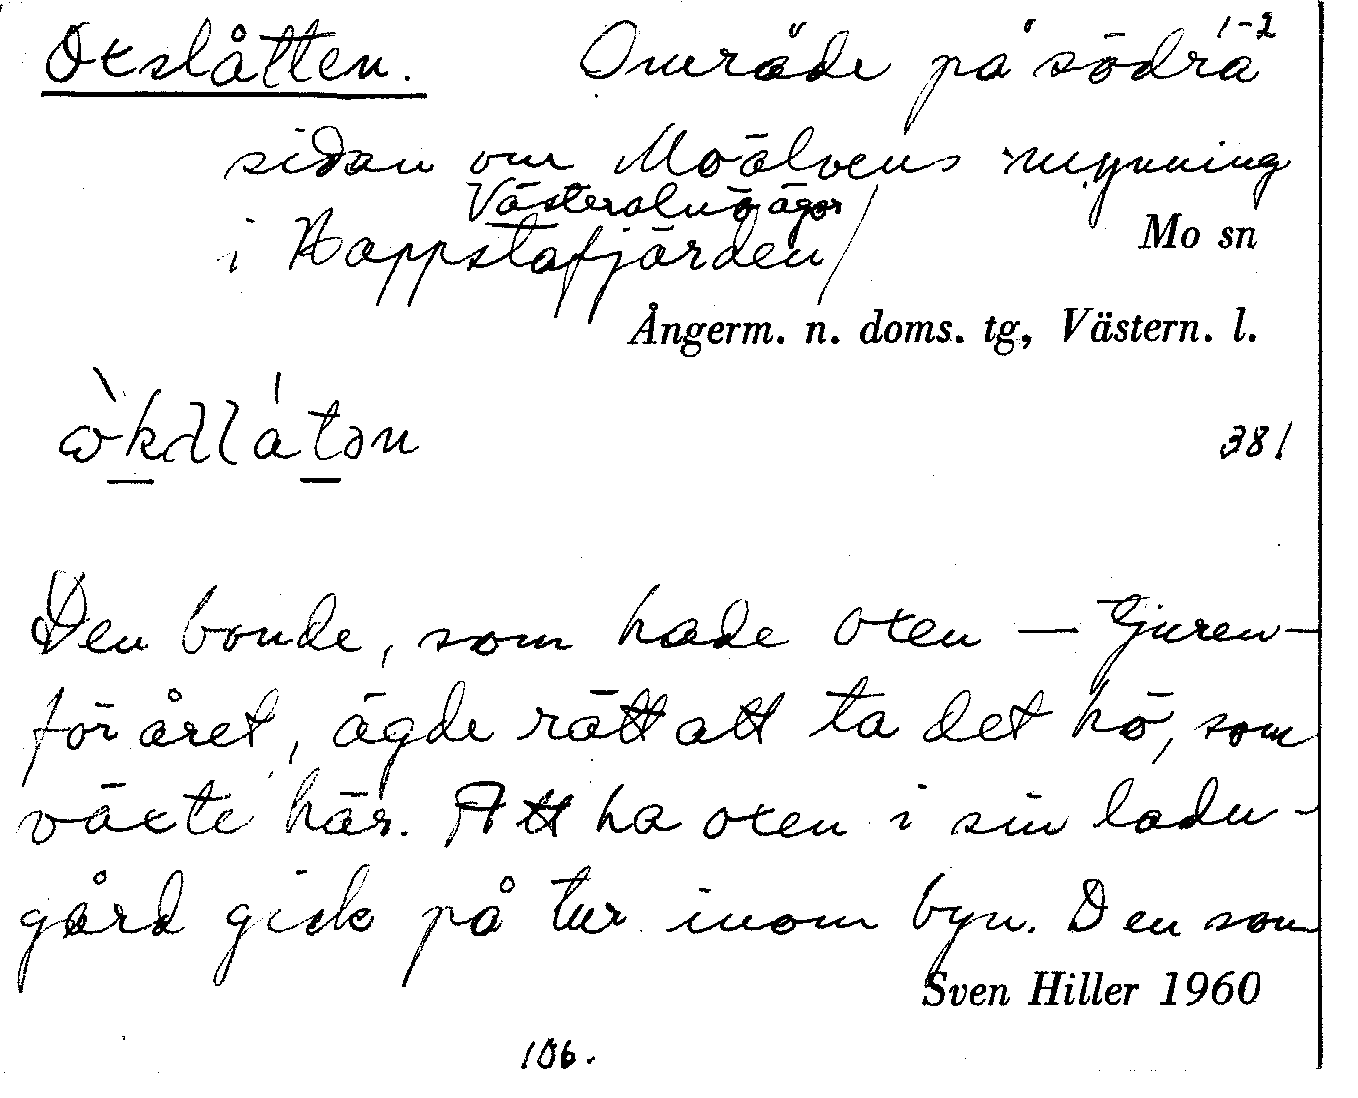 Oxslåtten. Område på södra 1-2
sidan om Moälvens mynning
Västeralnö ägor
i Happstafjärden/
Mo sn
Ångerm. n. doms. tg, Västern. l.
381
Den bonde, som hade oxen — tjuren —
för året, ägde rätt att ta det hö, som
växte här. Att ha oxen i sin ladu-
gård gick på tur inom byn. Den som
Sven Hiller 1960
106.